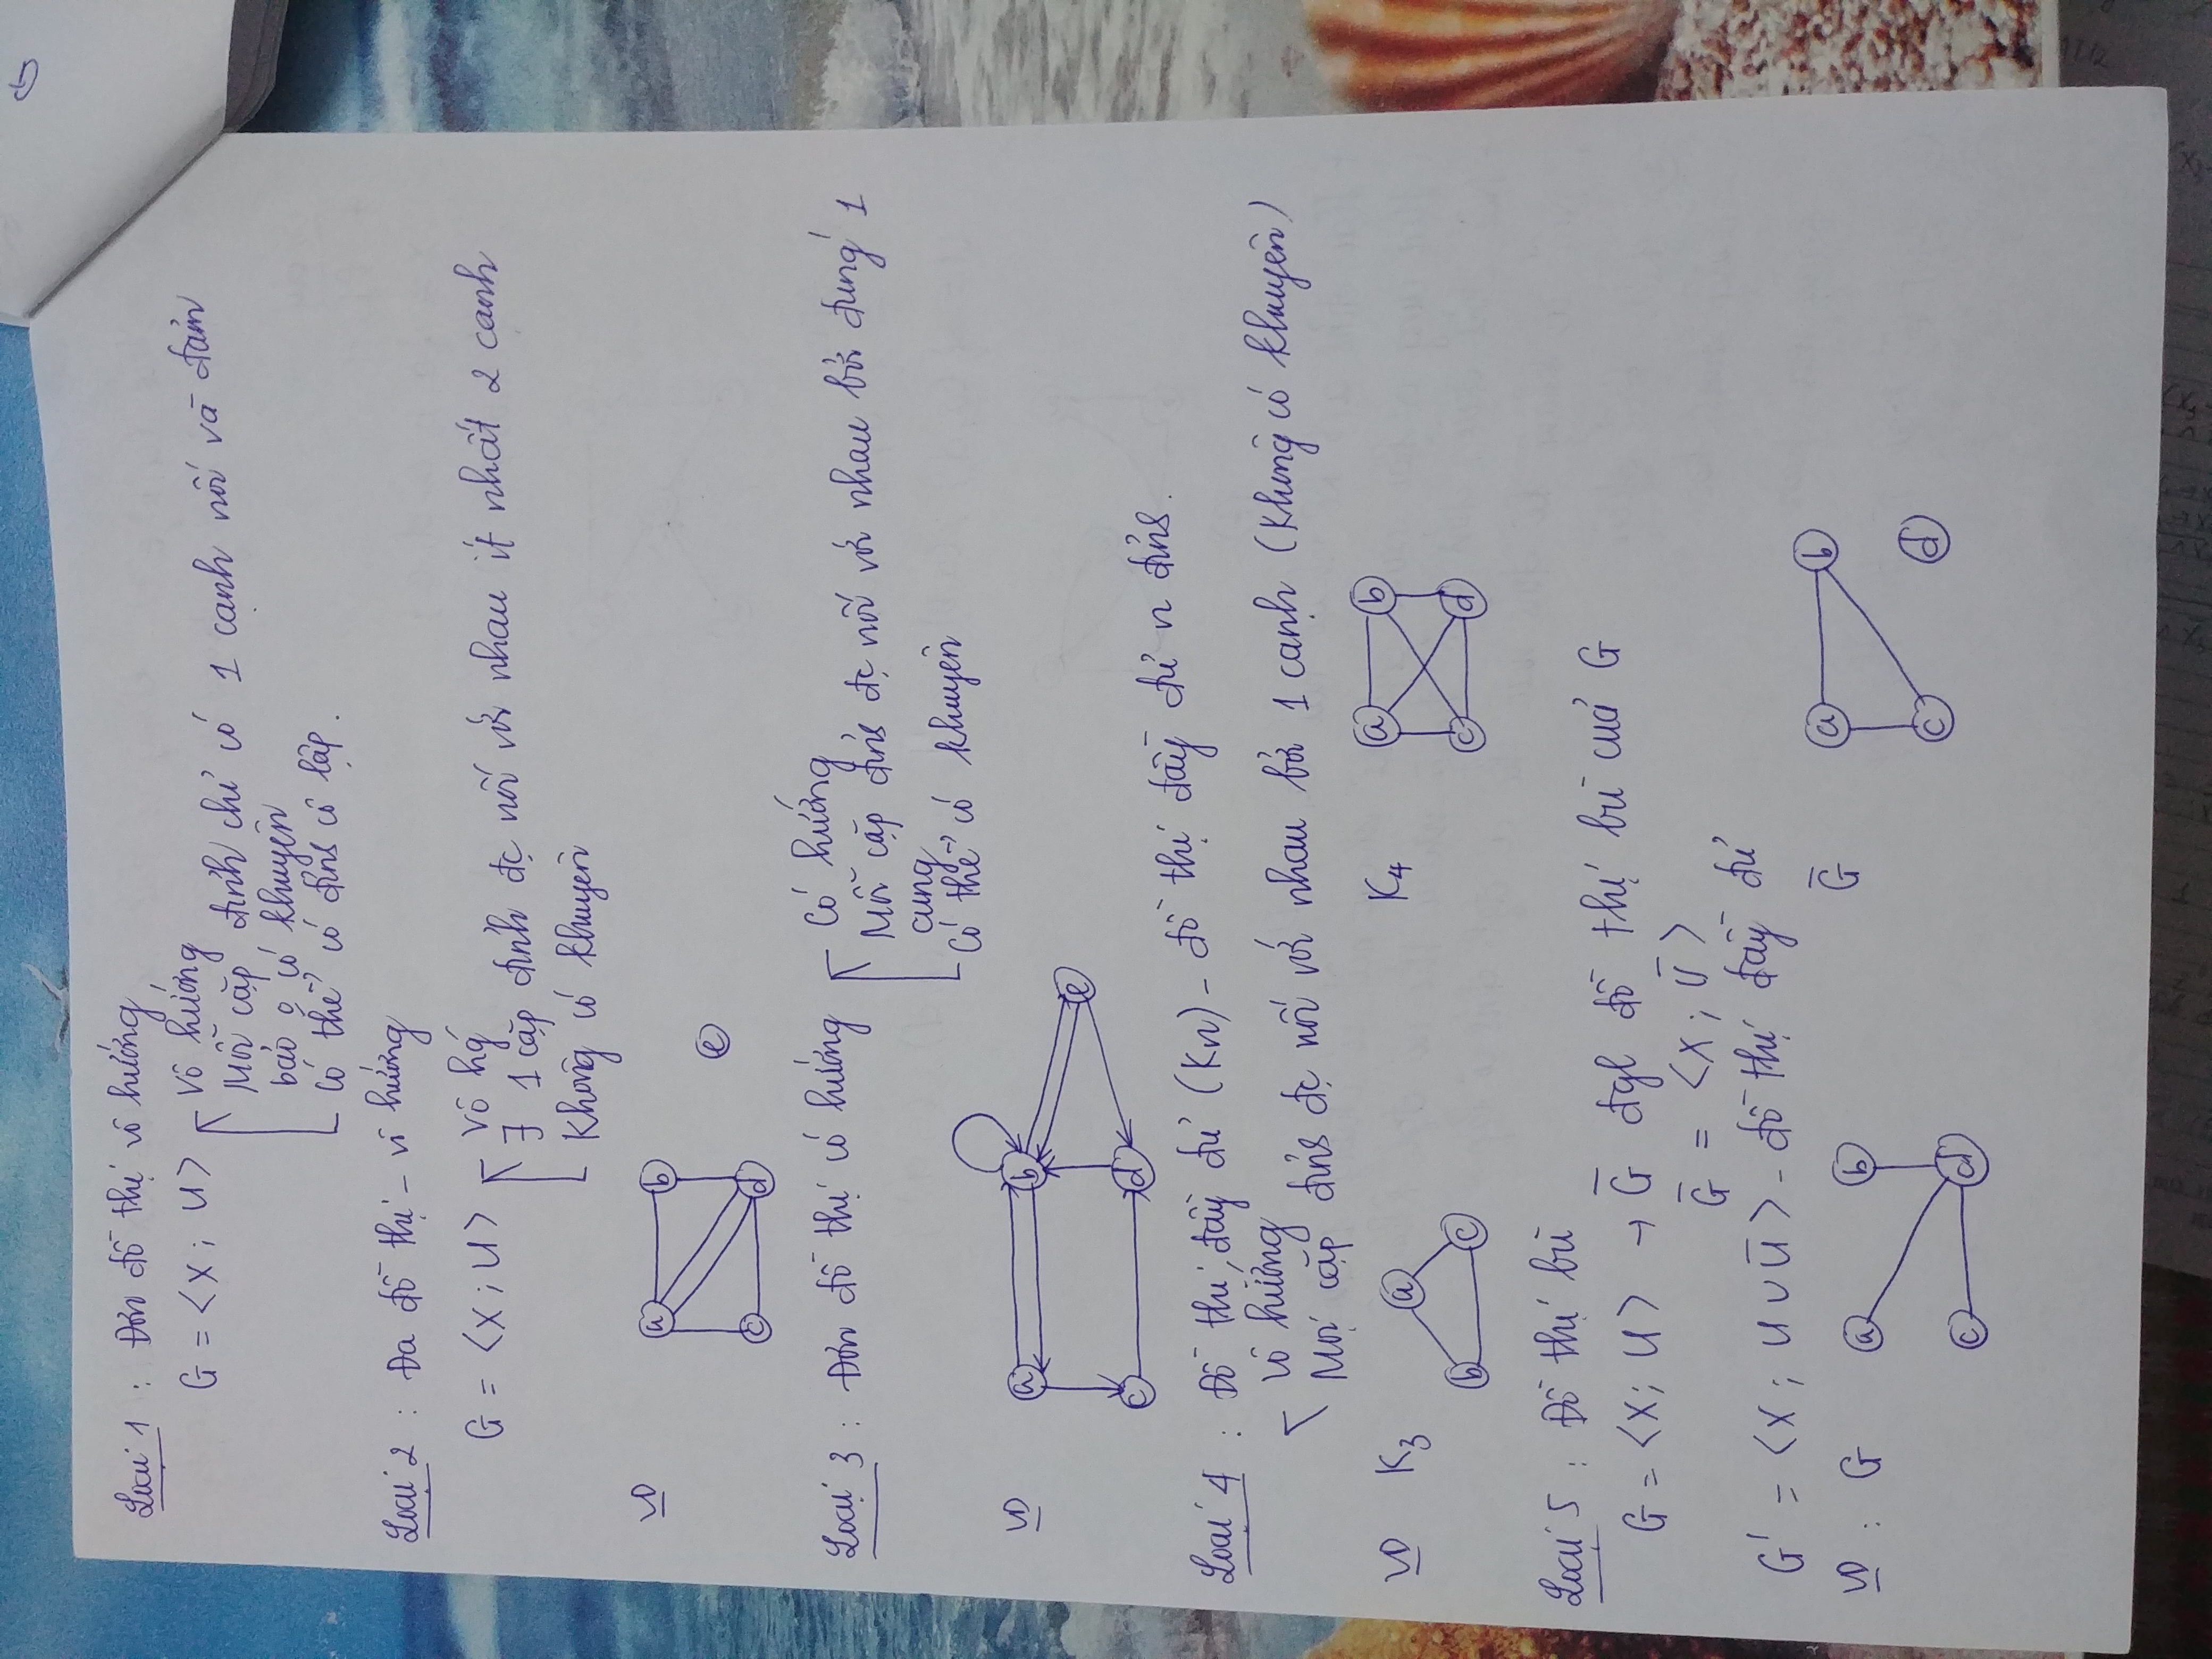 Loại 1 : Đơn đồ thị vô hướng
G = <X; U> Vô hướng
Mỗi cặp đỉnh chỉ có 1 cạnh nối và đảm
bảo o có khuyên
Có thể có đỉnh cô lập.
Loại 2 : Đa đồ thị - vô hướng
G = <X; U> Vô hg'
∃ 1 cặp đỉnh đc nối với nhau ít nhất 2 cạnh
Không có khuyên
VD a b
e
c d
Loại 3 : Đơn đồ thị có hướng Có hướng
Mỗi cặp đỉnh đc nối với nhau bởi đúng 1
cung
Có thể có khuyên
VD a b
e
c d
Loại 4 : Đồ thị đầy đủ (Kn) - đồ thị đầy đủ n đỉnh.
Vô hướng
Mọi cặp đỉnh đc nối với nhau bởi 1 cạnh (Không có khuyên)
VD K₃ a K₄ a b
b c c d
Loại 5 : Đồ thị bù
G = <X; U> → G̅ đgl đồ thị bù của G
G̅ = <X; U̅>
G' = <X; U∪U̅> - đồ thị đầy đủ
VD : G a b G̅ a b
c d c d
G